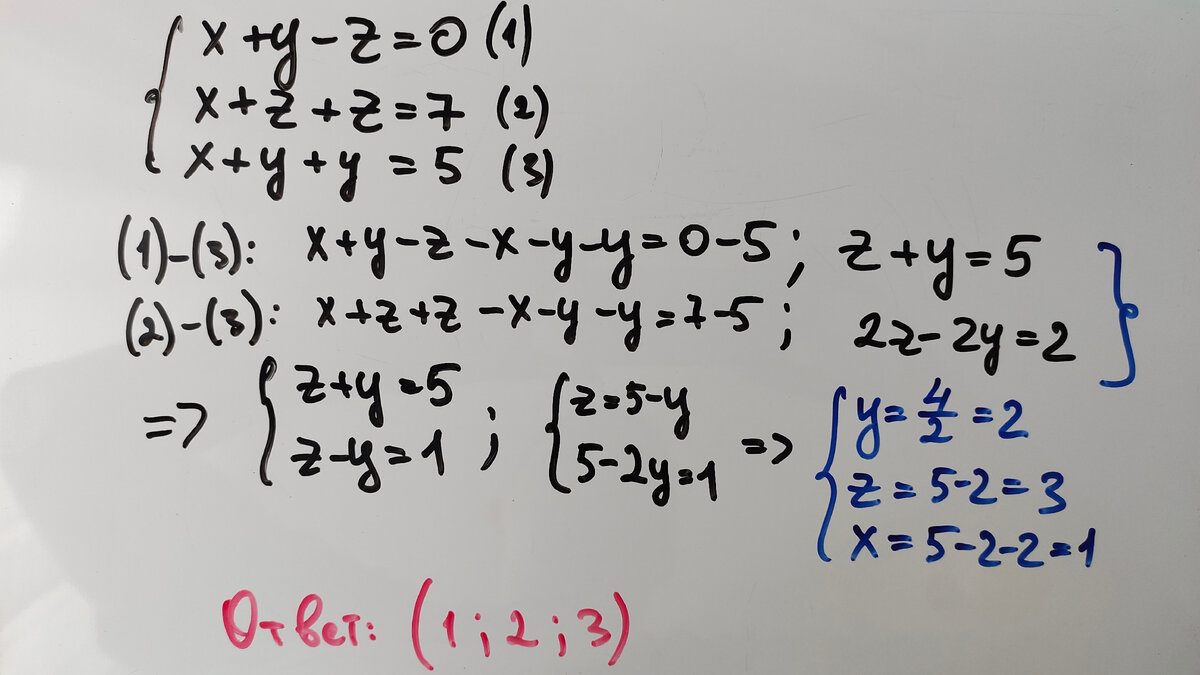 x+y-z=0 (1)
x+z+z=7 (2)
x+y+y=5 (3)
(1)-(3): x+y-z-x-y-y=0-5; z+y=5
(2)-(3): x+z+z-x-y-y=7-5; 2z-2y=2
=> { z+y=5 ; { z=5-y => { y=4/2=2
z-y=1 5-2y=1 z=5-2=3
x=5-2-2=1
Ответ: (1;2;3)